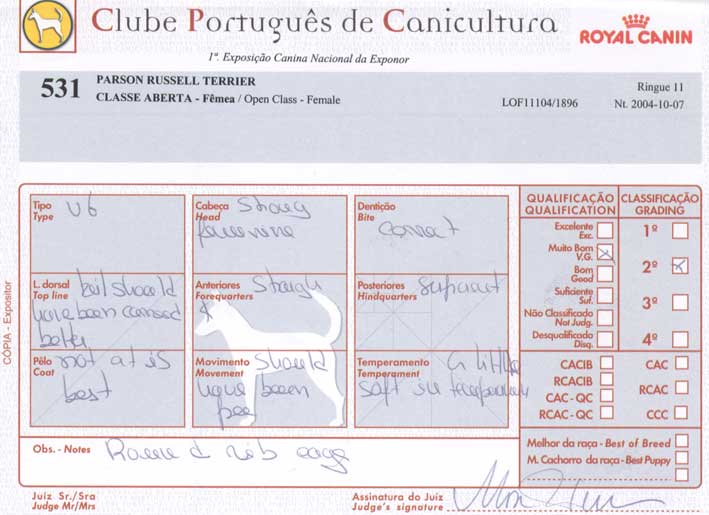 Clube Português de Canicultura
ROYAL CANIN
1ª. Exposição Canina Nacional da Exponor
531 PARSON RUSSELL TERRIER Ringue 11
CLASSE ABERTA - Fêmea / Open Class - Female LOF11104/1896 Nt. 2004-10-07
CÓPIA - Expositor
Tipo
Type
VG
Cabeça
Head
Strong
feminine
Dentição
Bite
correct
L. dorsal
Top line
tail should
have been carried
better
Anteriores
Forequarters
Straight
Posteriores
Hindquarters
sufficient
Pêlo
Coat
not at is
best
Movimento
Movement
should
have been
Temperamento
Temperament
a little
soft in temperament
Obs. - Notes Round rib cage
QUALIFICAÇÃO
QUALIFICATION
Excelente
Exc.
Muito Bom
V.G.
Bom
Good
Suficiente
Suf.
Não Classificado
Not Judg.
Desqualificado
Disq.
CLASSIFICAÇÃO
GRADING
1º
2º
3º
4º
CACIB CAC
RCACIB
CAC - QC RCAC
RCAC - QC CCC
Melhor da raça - Best of Breed
M. Cachorro da raça - Best Puppy
Juiz Sr./Sra
Judge Mr/Mrs
Assinatura do Juiz
Judge's signature